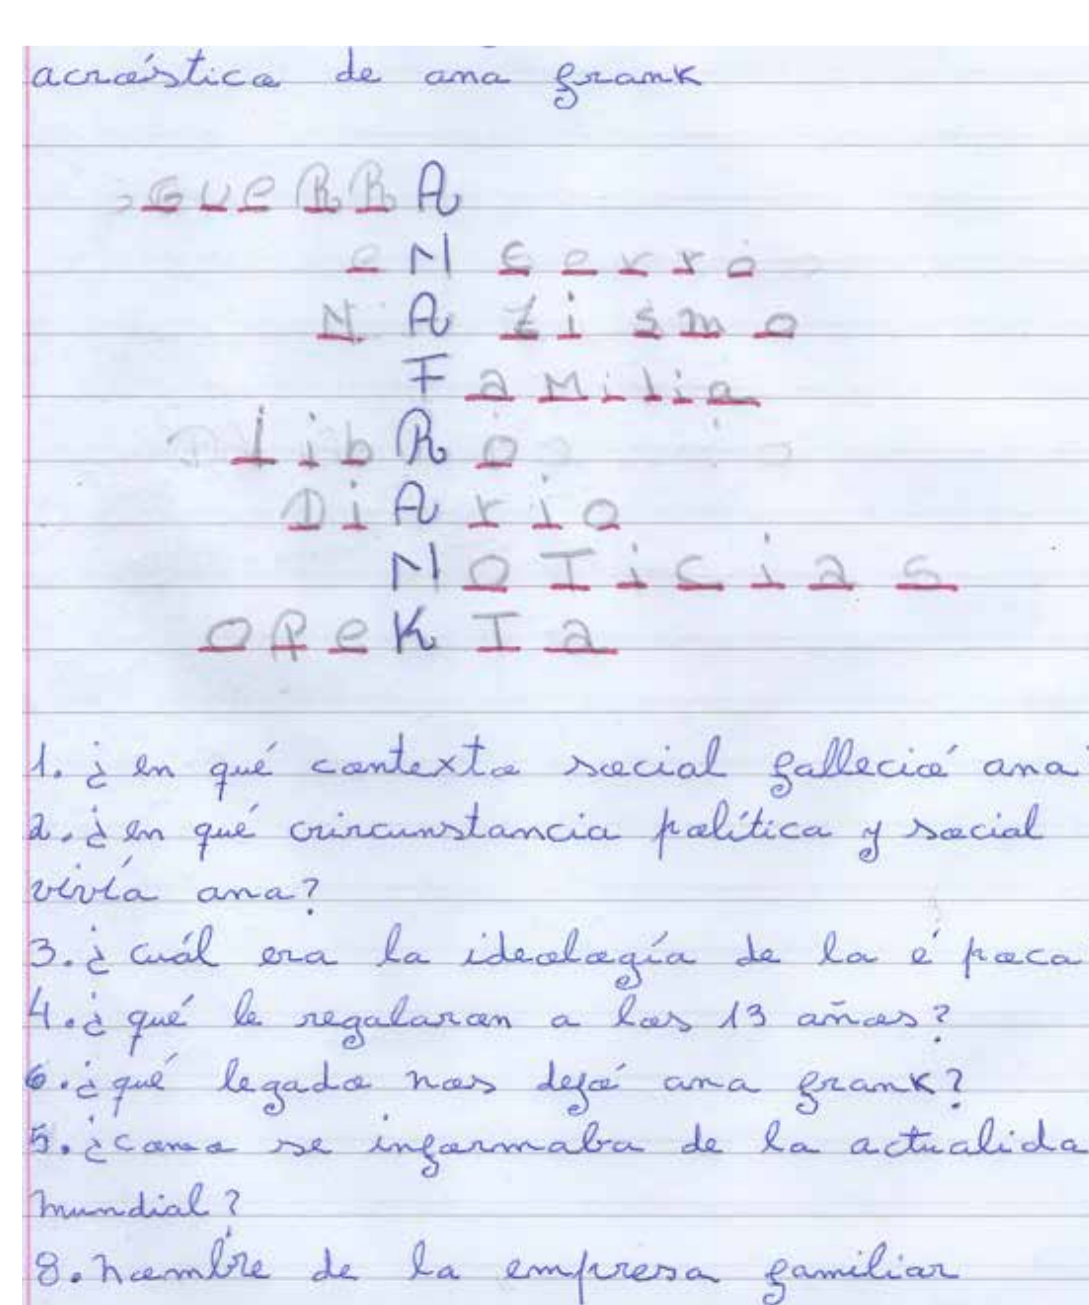 acróstico de ana frank
GUeRRA
eNcerro
NAZismo
FaMilia
libRo
DiArio
NoTicias
OPeKTa
1. ¿en qué contexto social falleció ana
2. ¿en qué circunstancia política y social
vivía ana?
3. ¿cuál era la ideología de la é poca
4. ¿qué le regalaron a los 13 años?
6. ¿qué legado nos dejó ana frank?
5. ¿como se informaba de la actualida
mundial?
8. nombre de la empresa familiar